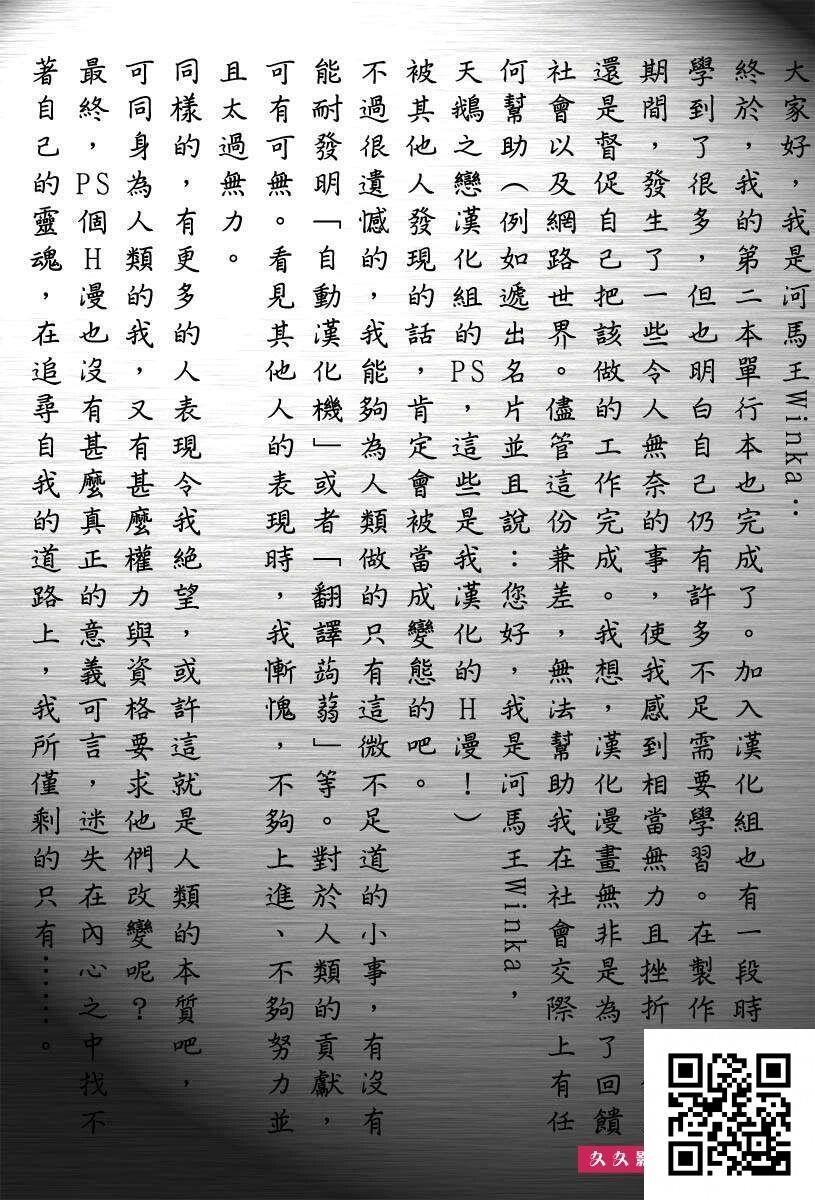 大家好，我是河馬王Winka：
終於，我的第二本單行本也完成了。加入漢化組也有一段時
學到了很多，但也明白自己仍有許多不足需要學習。在製作
期間，發生了一些令人無奈的事，使我感到相當無力且挫折
還是督促自己把該做的工作完成。我想，漢化漫畫無非是為了回饋
社會以及網路世界。儘管這份兼差，無法幫助我在社會交際上有任
何幫助（例如遞出名片並且說：您好，我是河馬王Winka，
天鵝之戀漢化組的PS，這些是我漢化的H漫！）
被其他人發現的話，肯定會被當成變態的吧。
不過很遺憾的，我能夠為人類做的只有這微不足道的小事，有沒有
能耐發明「自動漢化機」或者「翻譯蒟蒻」等。對於人類的貢獻，
可有可無。看見其他人的表現時，我慚愧，不夠上進、不夠努力並
且太過無力。
同樣的，有更多的人表現令我絕望，或許這就是人類的本質吧，
可同身為人類的我，又有甚麼權力與資格要求他們改變呢？
最終，PS個H漫也沒有甚麼真正的意義可言，迷失在內心之中找不
著自己的靈魂，在追尋自我的道路上，我所僅剩的只有……。
久久